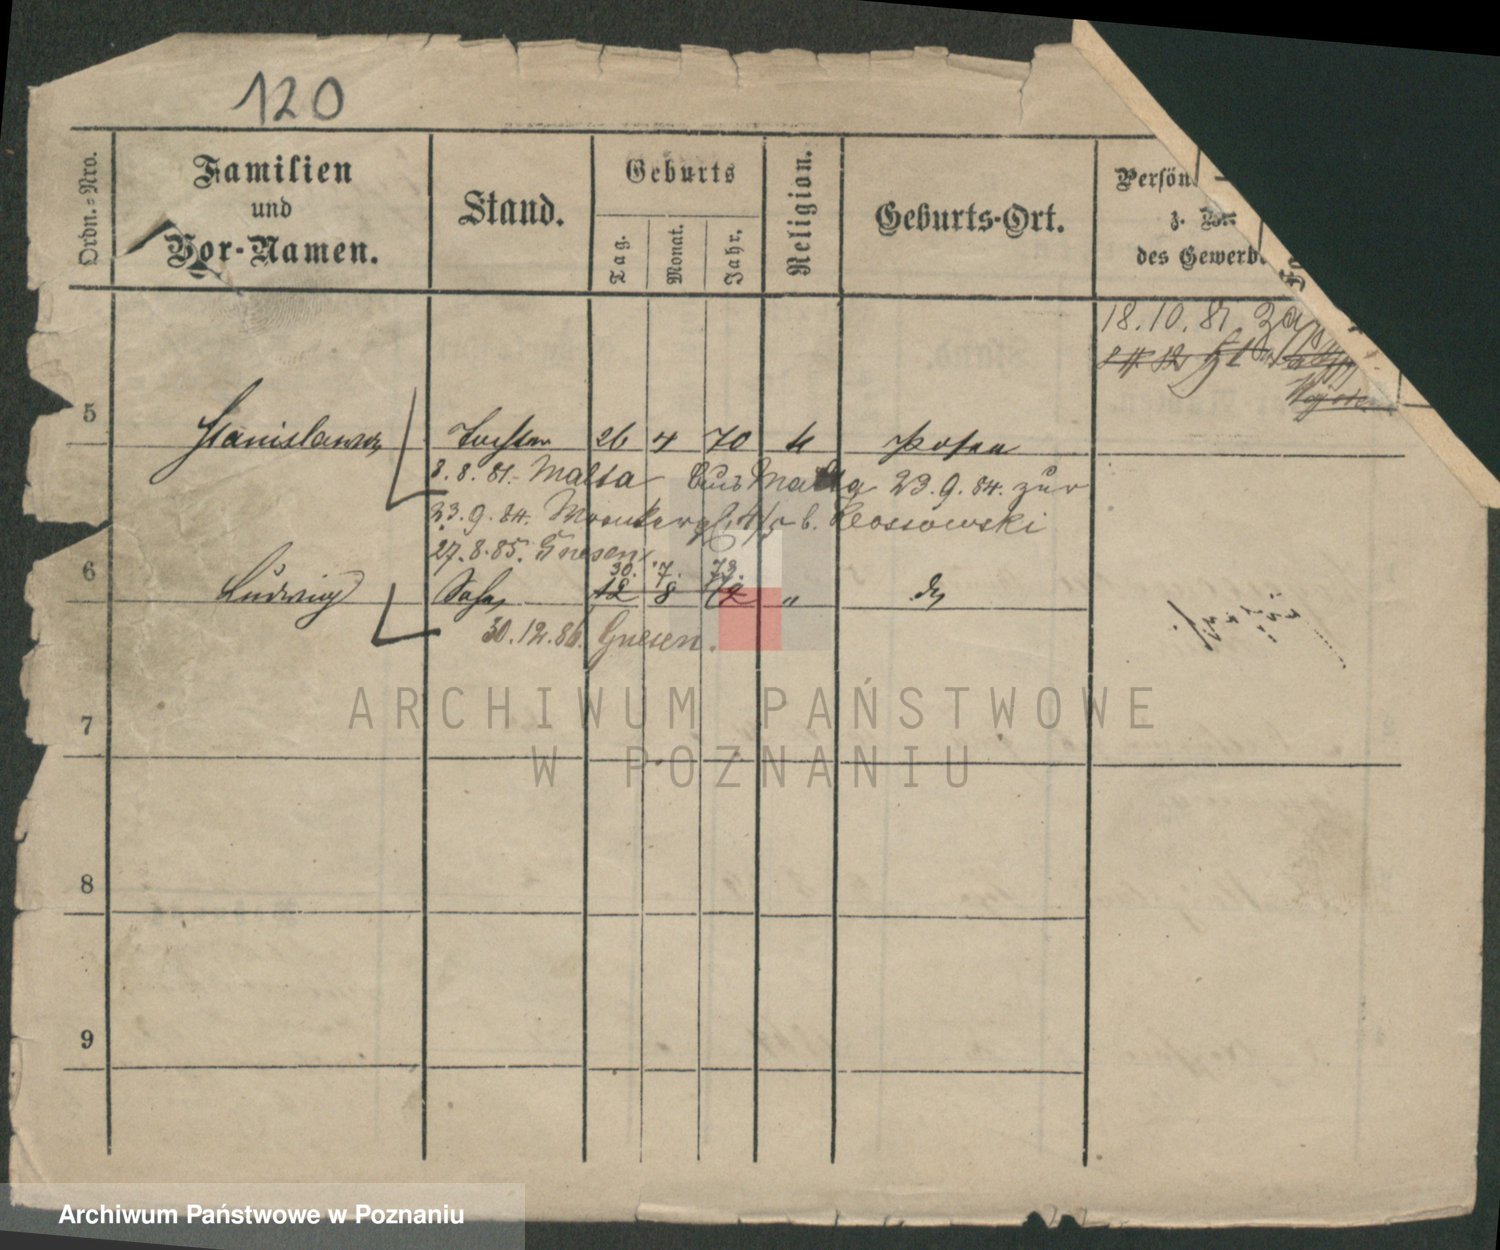 120
Ordn.=Nro.
Familien
und
Vor-Namen.
Stand.
Geburts
Tag.
Monat.
Jahr.
Religion.
Geburts-Ort.
Persön
z.
des Gewerb
18.10.81.
5 Stanislawa Tochter 26 4 70 k Posen
8.8.81. Malta Aus Malta 23.9.84. zur
23.9.84. 4/5 b. Klossowski
27.8.85. Gnesen
30. 7. 73.
6 Ludwig Sohn 12 8 72 "
30.12.86. Gnesen.
7
8
9
ARCHIWUM PAŃSTWOWE
W POZNANIU
Archiwum Państwowe w Poznaniu